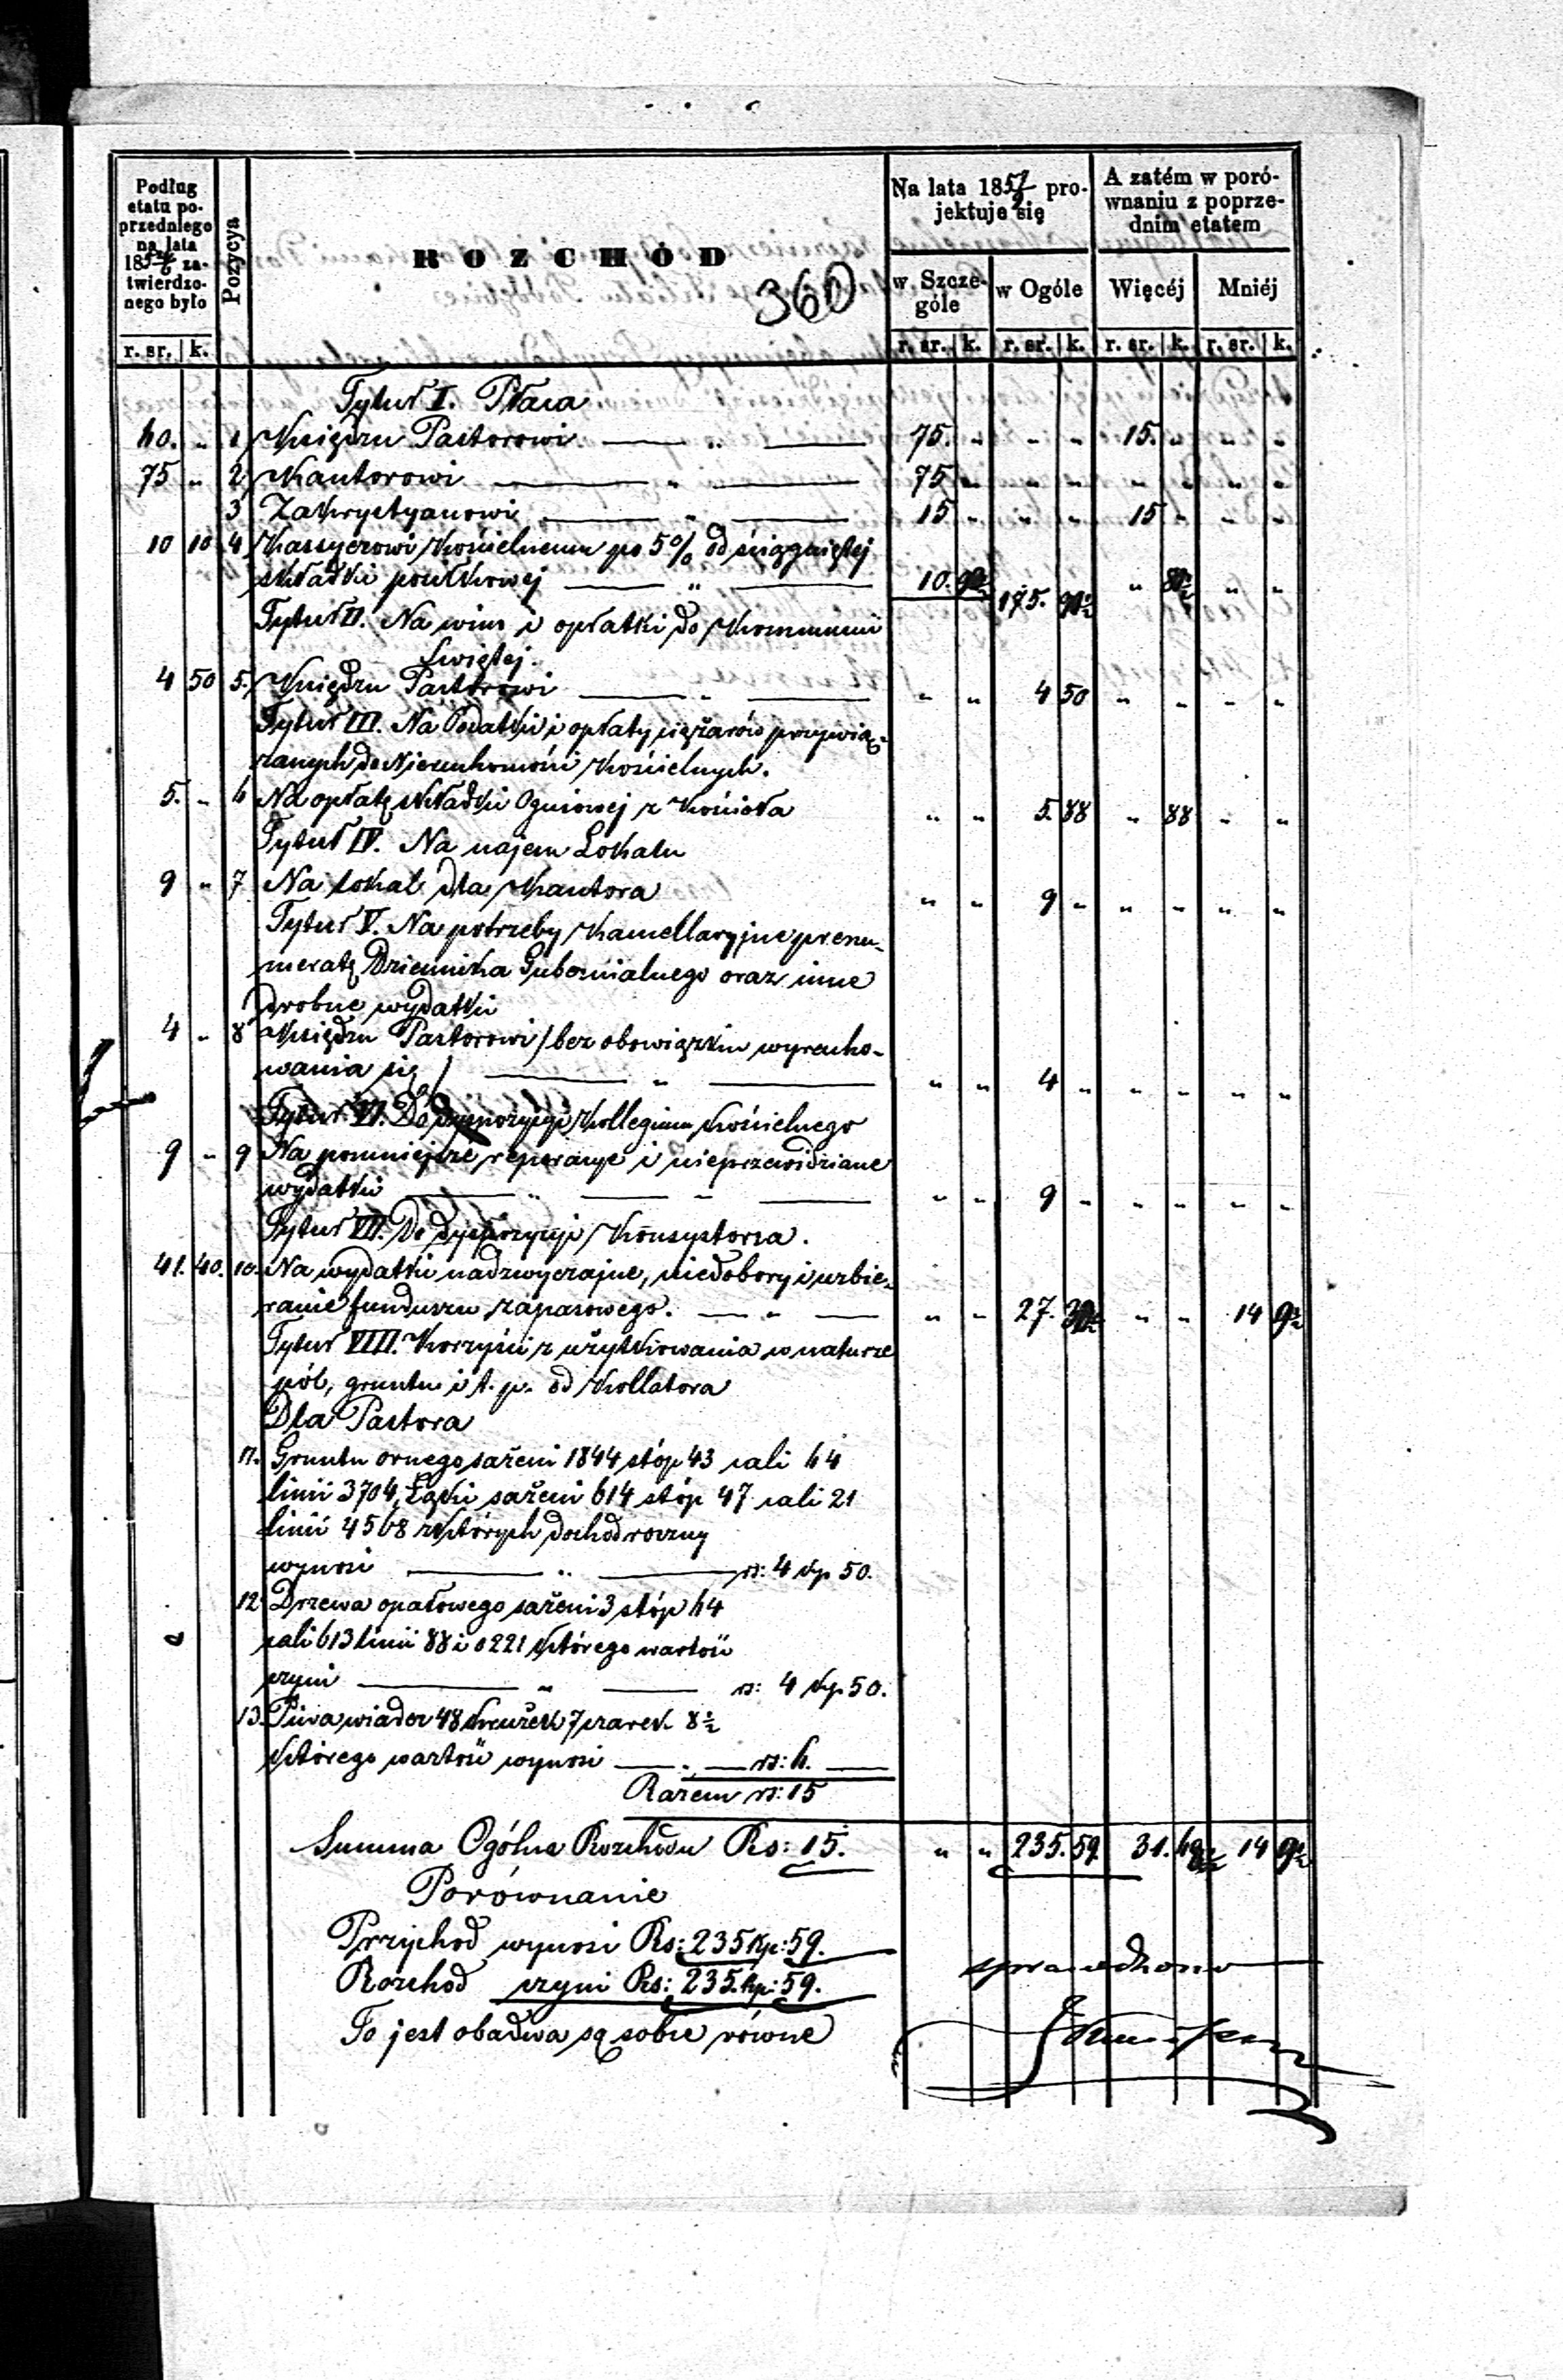 Podług etatu poprzedniego na lata 18 zatwierdzonego było
Pozycya
ROZCHÓD
360
Na lata 1857/9 projektuje się
A zatém w porównaniu z poprzednim etatem
w Szczególe
w Ogóle
Więcéj
Mniéj
r. sr. k. r. sr. k. r. sr. k. r. sr. k. r. sr. k.
Tytuł I. Płaca
60. " 1 Księdzu Pastorowi — " — 75. " " " 15. " " "
75 " 2 Kantorowi — " — 75 " " " " " " "
3 Zakrystyanowi — " — 15 " " " 15 " " "
10 10 4 Kassyerowi Kościelnemu po 5% od ściągniętej
składki posiłkowej — " — 10. 175. " " "
Tytuł II. Na wino i opłatki do Kommunii
Świętej.
4 50 5. Księdzu Pastorowi — " — " " 4 50 " " " "
Tytuł III. Na Podatki i opłaty ciężarów przywią-
zanych do Nieruchomości Kościelnych.
5. " 6 Na opłatę składki Ogniowej z Kościoła " " 5. 88 " 88 " "
Tytuł IV. Na najem Lokalu
9 " 7 Na lokal dla Kantora " " 9 " " " " "
Tytuł V. Na potrzeby Kancellaryjne prenu-
meratę Dziennika Gubernialnego oraz inne
drobne wydatki
4 " 8 Księdzu Pastorowi / bez obowiązku wyracho-
wania się / — " — " " 4 " " " " "
Tytuł VI. Do dyspozycyi Kollegium Kościelnego
9 " 9 Na pomniejsze reperacye i nieprzewidziane
wydatki — " — " — " " 9 " " " " "
Tytuł VII. Do dyspozycyi Konsystorza.
41. 40. 10. Na wydatki nadzwyczajne, niedobory i uzbie-
ranie funduszu zapasowego. — " — " " 27. " " 14 9½
Tytuł VIII. Korzyści z użytkowania w naturze
pól, gruntu i t. p. od Kollatora
Dla Pastora
11. Gruntu ornego sażeni 1844 stóp 43 cali 64
linii 3704, Łąki sażeni 614 stóp 47 cali 21
linii 4568 z których dochód roczny
wynosi — " — rs: 4 kp 50.
12 Drzewa opałowego sażeni 3 stóp 64
cali 613 linii 88 i 0221 którego wartość
czyni — " — rs: 4 kp 50.
13. Piwa wiader 48 krużek 7 czarek 8½
którego wartość wynosi — " — rs: 6. —
Razem rs: 15
Summa Ogólna Rozchodu Rs: 15. " " 235. 59. 31. 14 9½
Porównanie
Przychod wynosi Rs: 235 Kp: 59.
Rozchod czyni Rs: 235. kp: 59.
sprawdzono
To jest obadwa są sobie równe